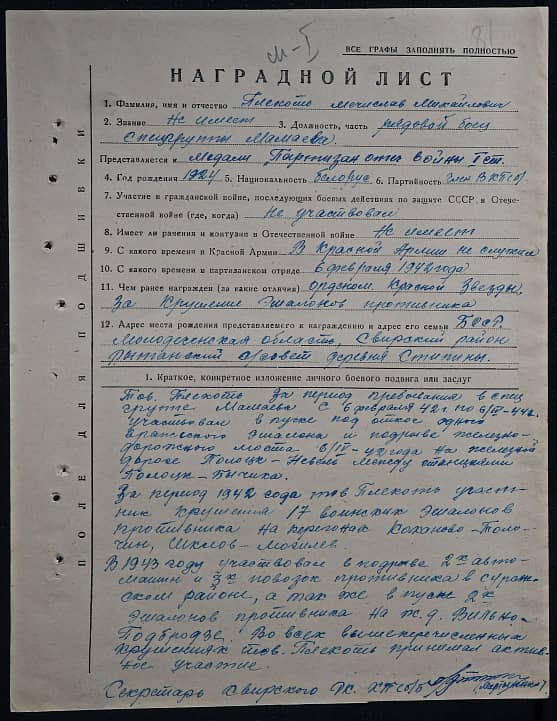 81
М-I
ВСЕ ГРАФЫ ЗАПОЛНЯТЬ ПОЛНОСТЬЮ
НАГРАДНОЙ ЛИСТ
1. Фамилия, имя и отчество Плескоть Мочислав Михайлович
2. Звание Не имеет 3. Должность, часть рядовой боец
спецгруппы Мамаева.
Представляется к Медали Партизан отеч войны I ст.
4. Год рождения 1924 5. Национальность белорус 6. Партийность член ВКП(б)
7. Участие в гражданской войне, последующих боевых действиях по защите СССР и Отече-
ственной войне (где, когда) не участвовал
8. Имеет ли ранения и контузии в Отечественной войне Не имеет
9. С какого времени в Красной Армии В Красной Армии не служил
10. С какого времени в партизанском отряде 6 февраля 1942 года
11. Чем ранее награжден (за какие отличия) орденом Красной Звезды,
за крушение эшалонов противника
12. Адрес места рождения представляемого к награждению и адрес его семьи БССР.
Молодеченская область, Свирский район
с/совет деревня Стипины.
1. Краткое, конкретное изложение личного боевого подвига или заслуг
Тов. Плескоть за период пребывания в спец
группе Мамаева с 6 февраля 42 г. по 6/IV-44г.
участвовал в пуске под откос одного
вражеского эшалона и подрыве железно-
дорожного моста 6/IV-42 года на железной
дороге Полоцк-Невель между станциями
Полоцк-
За период 1942 года тов Плескоть участ-
ник крушения 17 воинских эшалонов
противника на перегонах Коханово-Толо-
чин, Шклов-Могилев.
В 1943 году участвовал в подрыве 2х авто-
машин и 3х повозок противника в сураж-
ском районе, а так же в пуске 2х
эшалонов противника на ж.д. Вильно-
Подбродзе. Во всех вышеперечисленных
крушениях тов. Плескоть принимал актив-
ное участие.
Секретарь Свирского РК КП(б)Б
ПОЛЕ ДЛЯ ПОДШИВКИ